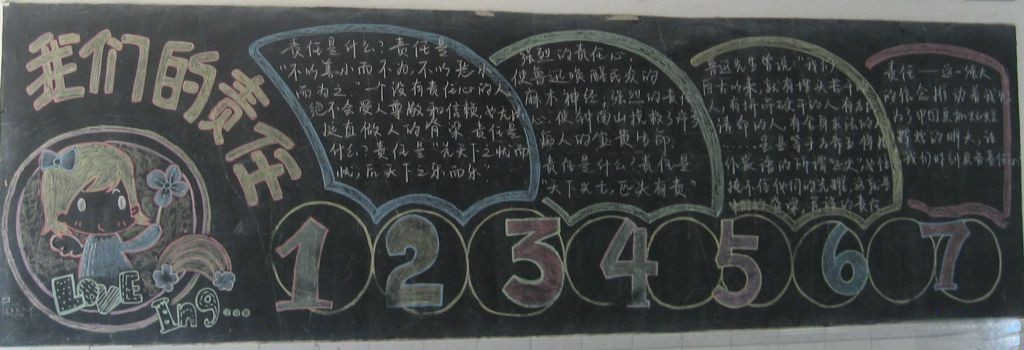 我们的责任
责任是什么？责任是
"不以善小而不为，不以恶小
而为之"，一个没有责任心的人
绝不会受人尊敬和信赖，也无
挺直做人的脊梁，责任是
什么？责任是"先天下之忧而
忧，后天下之乐而乐"
强烈的责任心，
使鲁迅唤醒民众的
麻木神经，强烈的责任
心，使钟南山拯救了许多
病人的宝贵生命
责任是什么？责任是
"天下兴亡，匹夫有责"
鲁迅先生曾说："我们
自古以来，就有埋头苦干的
人，有拼命硬干的人，有为民
请命的人，有舍身求法的人
掩不住他们的光耀，这就是
责任——这一伟大
的信念推动着我们
为了中国更加灿烂
辉煌的明天，让
我们时刻肩负责任心
LOVE
Ing...
1 2 3 4 5 6 7